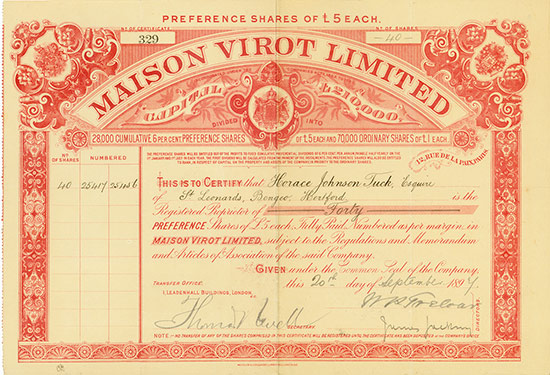 PREFERENCE SHARES OF £5 EACH.
Nº OF CERTIFICATE
329
Nº OF SHARES
-40-
MAISON VIROT LIMITED
CAPITAL £210,000.
DIVIDED INTO
28,000 CUMULATIVE 6 PER CENT PREFERENCE SHARES OF £5 EACH AND 70,000 ORDINARY SHARES OF £1 EACH
12, RUE DE LA PAIX, PARIS
Nº OF SHARES
NUMBERED
40
THIS IS TO CERTIFY that Horace Johnson Tuck, Esquire
of St Leonards, Bengeo, Hertford is the
Registered Proprietor of Forty
PREFERENCE Shares of £5 each, Fully Paid, Numbered as per margin, in
MAISON VIROT LIMITED, subject to the Regulations and Memorandum
and Articles of Association of the said Company.
GIVEN under the Common Seal of the Company,
this 20th day of September 1897.
TRANSFER OFFICE:
1, LEADENHALL BUILDINGS, LONDON, E.C.
SECRETARY.
DIRECTORS.
NOTE:- NO TRANSFER OF ANY OF THE SHARES COMPRISED IN THIS CERTIFICATE WILL BE REGISTERED UNTIL THE CERTIFICATE HAS BEEN DEPOSITED AT THE COMPANY'S OFFICE